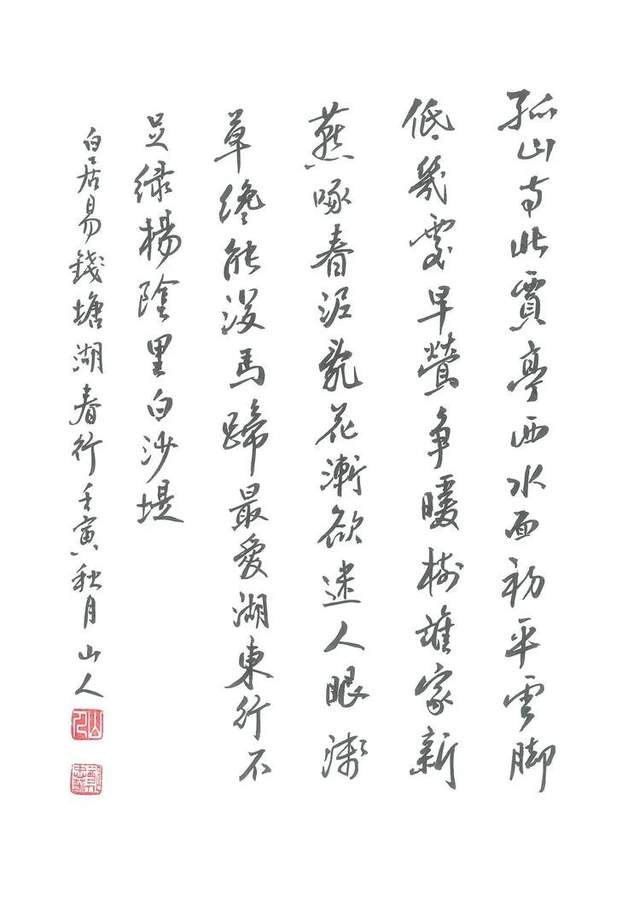 孤山寺北賈亭西水面初平雲脚
低幾處早鶯争暖樹誰家新
燕啄春泥亂花漸欲迷人眼淺
草纔能没馬蹄最愛湖東行不
足绿楊陰里白沙堤
白居易錢塘湖春行壬寅秋月山人
山人